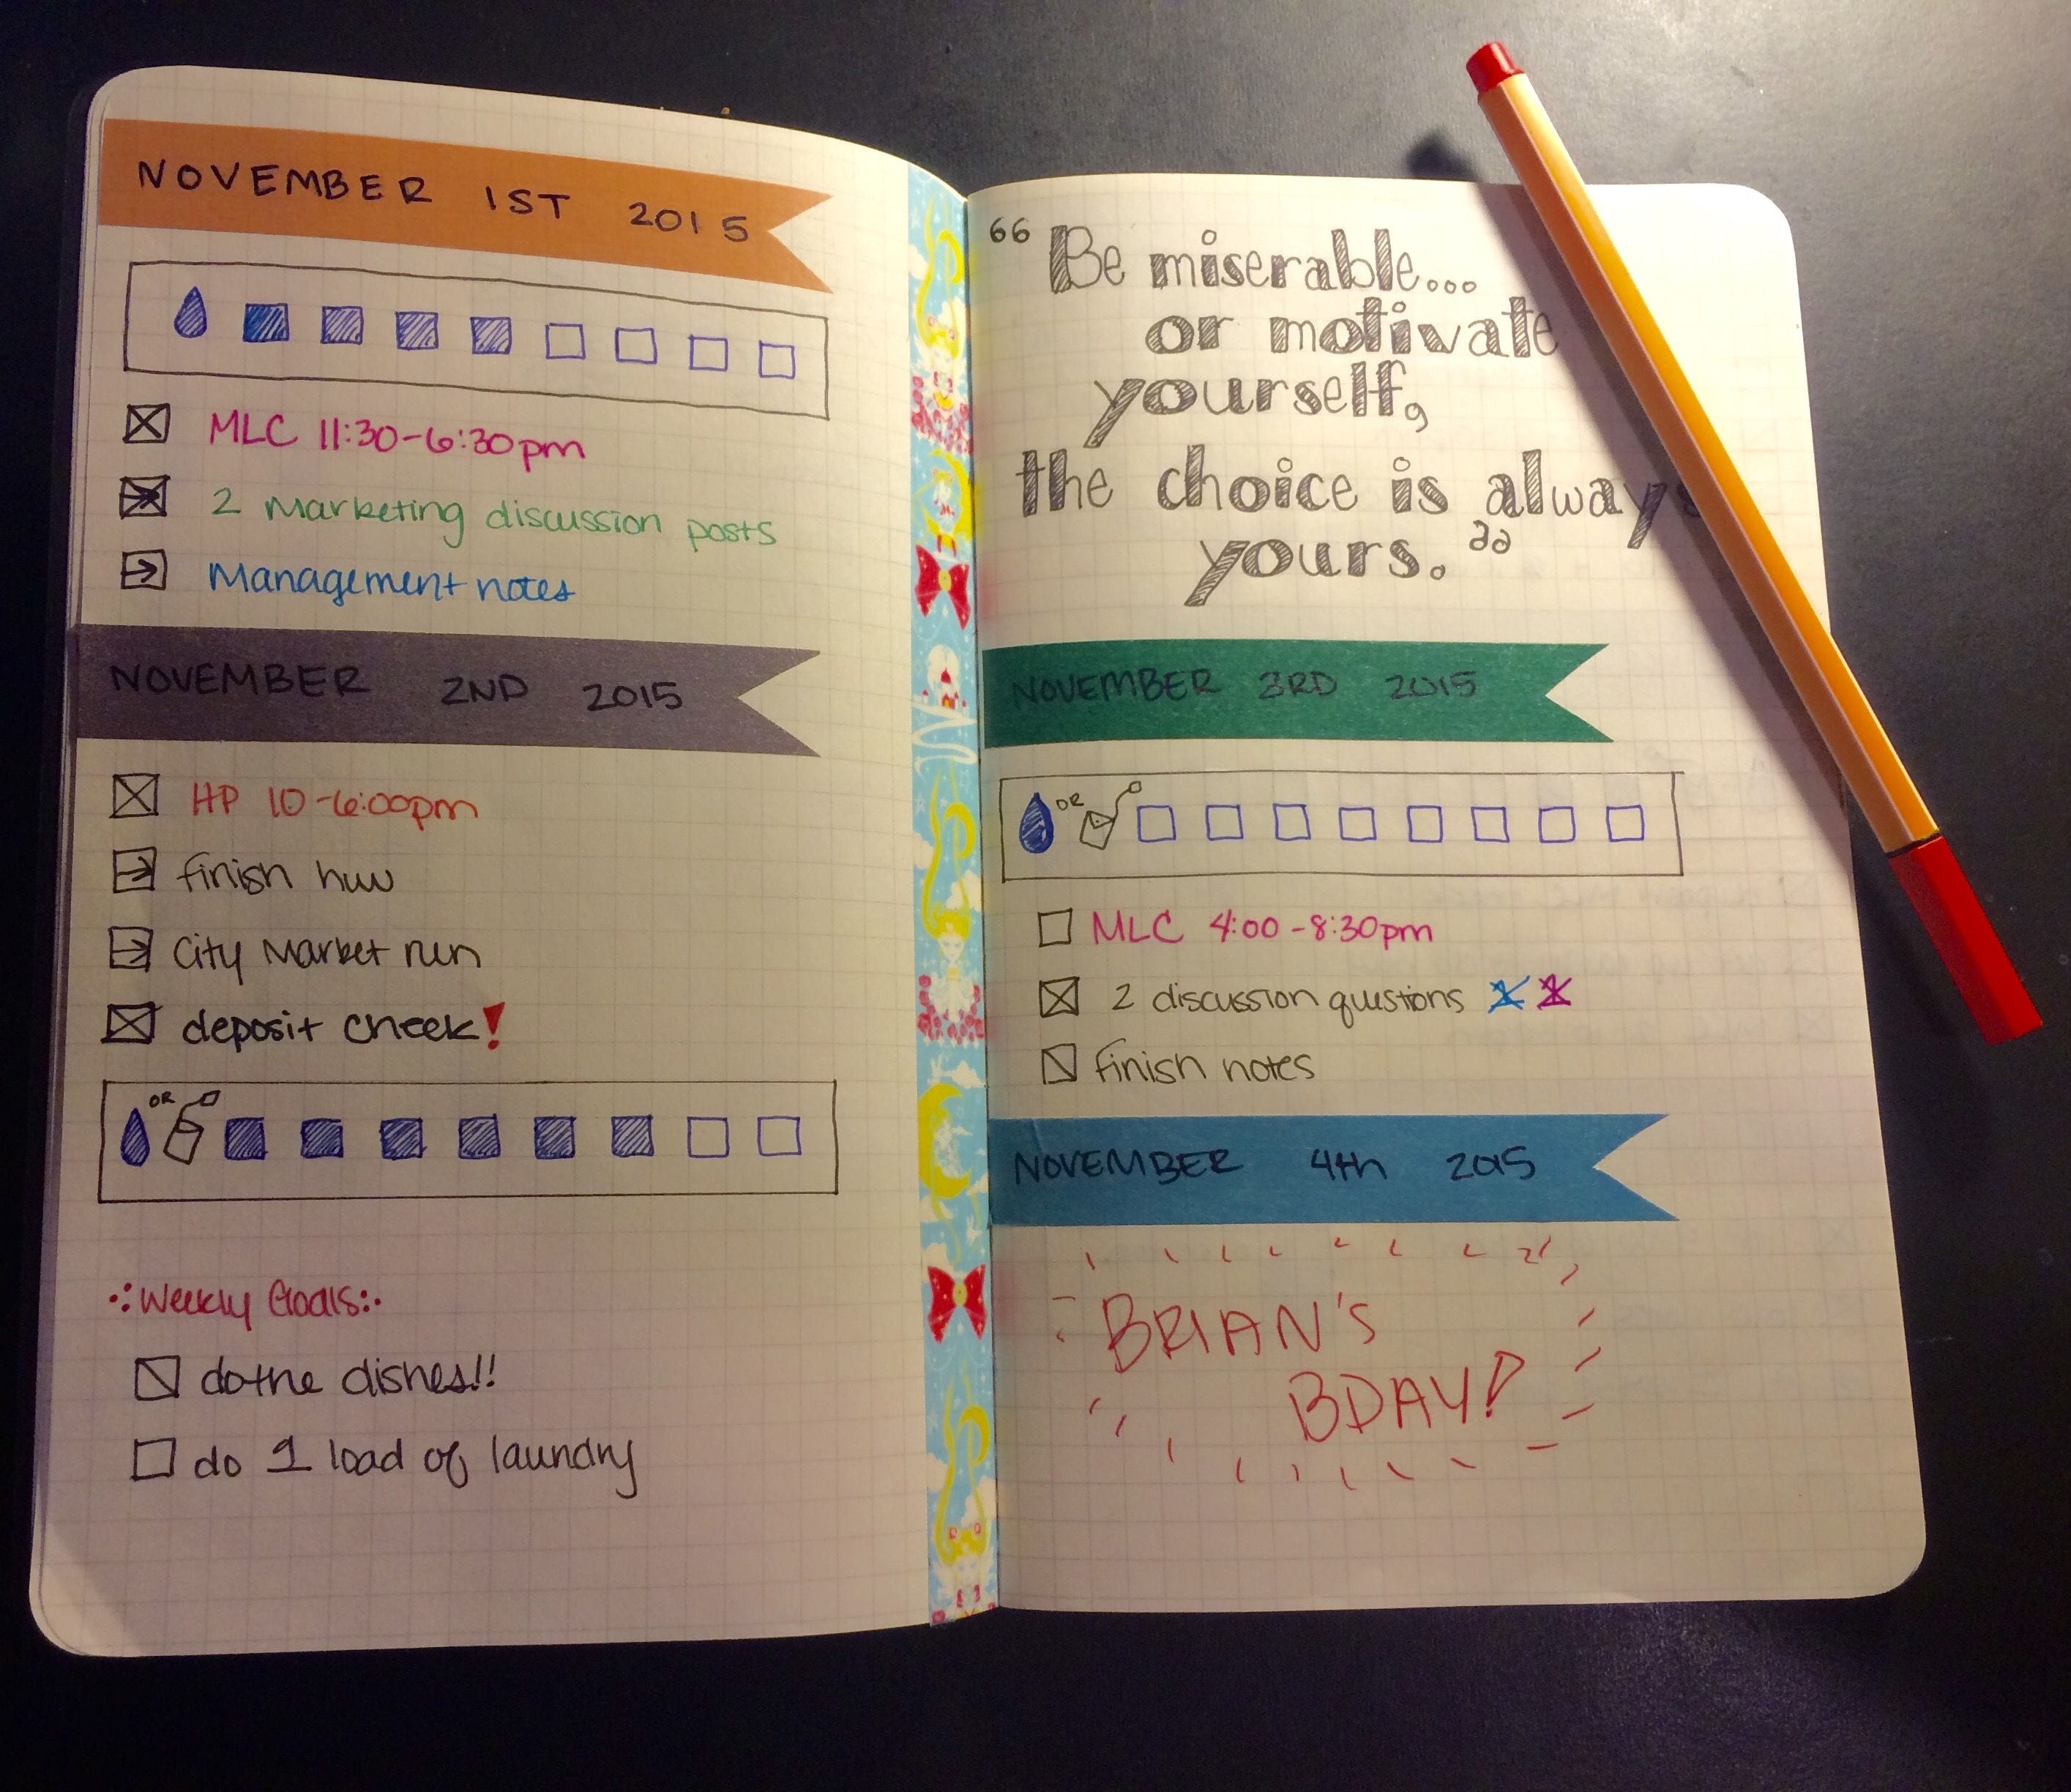 NOVEMBER 1ST 2015
MLC 11:30-6:30pm
2 Marketing discussion posts
Management notes
NOVEMBER 2ND 2015
HP 10-6:00pm
finish hw
City Market run
deposit check!
OR
Weekly Goals:
do the dishes!!
do 1 load of laundry
“Be miserable...
or motivate
yourself,
the choice is always
yours.”
NOVEMBER 3RD 2015
OR
MLC 4:00-8:30pm
2 discussion questions
finish notes
NOVEMBER 4th 2015
BRIAN'S
BDAY!